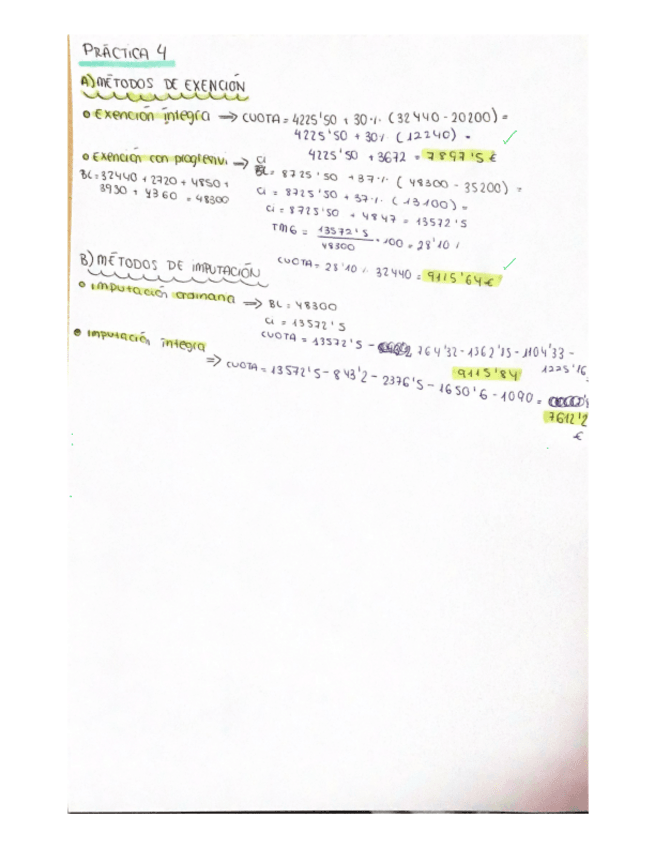 PRÁCTICA 4
A) MÉTODOS DE EXENCIÓN
• Exención íntegra ⇒ CUOTA = 4225'50 + 30·/· (32440 - 20200) =
4225'50 + 30·/. (12240) =
4225'50 + 3672 = 7897'5 €
• Exención con progresivi ⇒ Ci
BL = 32440 + 2720 + 4850 +
3930 + 4360 = 48300
= 8725'50 + 37·/· (48300 - 35200) =
Ci = 8725'50 + 37·/· (13100) =
Ci = 8725'50 + 4847 = 13572'5
TMG = 13572'5 / 48300 · 100 = 28'10 /
CUOTA = 28'10 /· 32440 = 9115'64 €
B) MÉTODOS DE IMPUTACIÓN
• Imputación ordinaria ⇒ BL = 48300
Ci = 13572'5
CUOTA = 13572'5 - 764'32 - 1362'35 - 1104'33 -
1225'16
9115'84
• Imputación íntegra
⇒ CUOTA = 13572'5 - 843'2 - 2376'5 - 1650'6 - 1090 =
7612'2
€